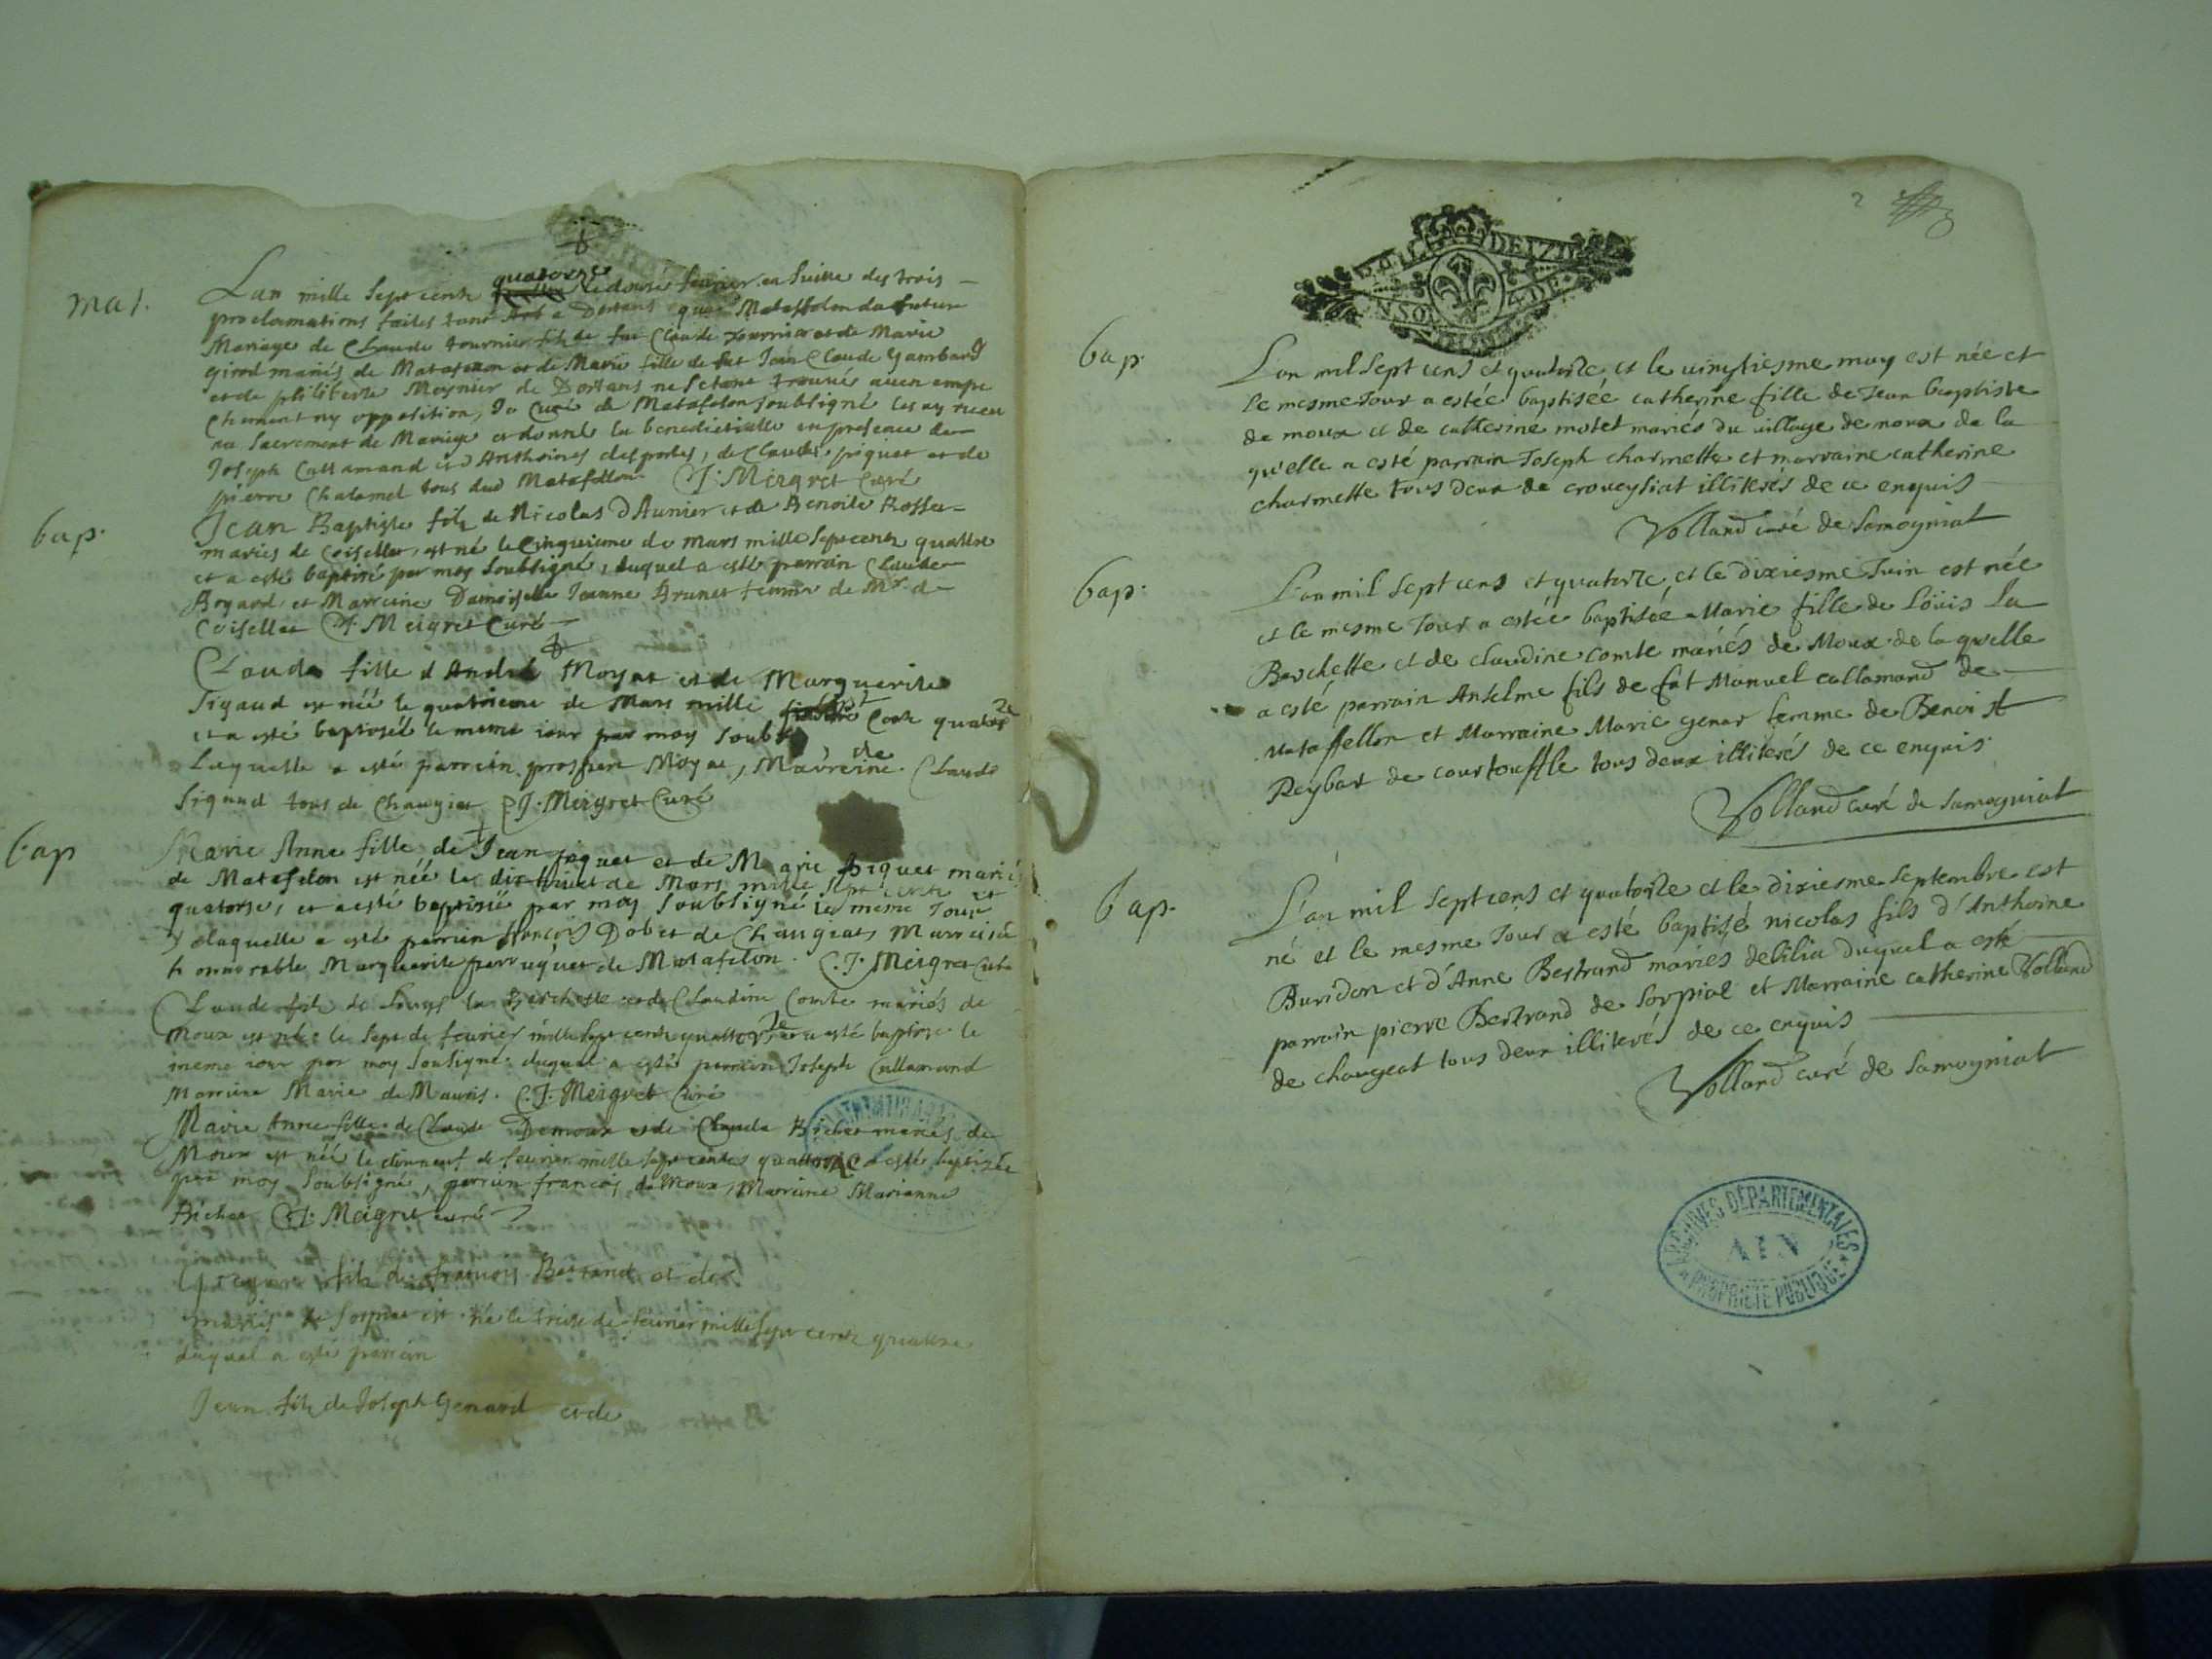 mar.
L'an mille sept cents quatorze le douse feurier en suitte des trois
proclamations faites tant a Dortans que Mataffelon du futur
Mariage de Claude tournier filz de fut Claude tournier et de Marie
girod mariés de Matafelon et de Marie fille de fut Jean Claude Gambard
et de philiberte Moynier de Dortans ne s'etant trouué aucun empe
chement ny opposition, Je Curé de Matafelon soubsigné les ay receu
au sacrement de Mariage et donné la benediction en presence de
Joseph Callamand et Anthoines desportes, de Claude piquet et de
pierre Chalamel tous dud Matafellon C. J. Meigret Curé
bap.
Jean Baptiste filz de Nicolas D'Aunier et de Benoite Rosser
mariés de Coisellet, est né le cinquieme de mars mille sept cents quattre
et a esté baptisé par moy soubsigné, duquel a esté parrain Claude
Boyard et Marreine Damoiselle Jeanne Brunet femme de Mr. de
Coisellet C. J. Meigret Curé
Claude fille d'André Moyat et de Marguerite
Sigaud est néé le quatrieme de Mars mille sept Cents quatorze
et a esté baptiséé le meme iour par moy soubs
Laquelle a esté parrein prosper Moyat, Marreine Claude
Sigaud tous de Changiat C. J. Meigret Curé
bap
Marie Anne fille de Jean piquet et de Marie piquet mariés
de Matafelon est néé le dix huict de Mars mille sept cents et
quatorse, et a esté baptiséé par moy soubsigné le meme Jour
de laquelle a esté parrein françois Dobet de Changiat Marreine
honnorable Marguerite perruquet de Matafelon. C. J. Meigret Curé
Claude filz de Louys la Berchette et de Claudine Comte mariés de
Moux est né le sept de feurier mille sept cents quattorze et a esté baptisé le
meme iour par moy soubsigné duquel a esté parrein Joseph Callamand
Marreine Marie de Mauris. C. J. Meigret Curé
Marie Anne fille de Claude Demoux et de Claude Bichet mariés de
Moux est néé le dixneuf de feurier mille sept centes quattorze a esté baptisée
par moy soubsigné, parrein françois de Moux, Marreine Marianne
Bichet C. J. Meigret curé
filz de françois Bertrand et de
mariés de Sorpiat est né le treise de feurier mille sept cents quattre
duquel a esté parrein
Jean filz de Joseph Genard et de
2
bap.
L'an mil sept cens et quatorze et le vingtiesme may est née et
le mesme Jour a estéé baptiséé catherine fille de Jean baptiste
de moux et de catterine motet mariés du uillage de moux de la
qu'elle a esté parrain Joseph charmette et marraine catherine
charmette tous deux de croueysiat illiterés de ce enquis
Volland curé de Samogniat
bap.
L'an mil sept cens et quatorze et le dixiesme Juin est née
et le mesme Jour a estéé baptiséé Marie fille de Loüis La
Berchette et de claudine comte mariés de Moux de la quelle
a esté parrain Anselme fils de fut Manuel callamand de
Mataffellon et Marraine Marie genar femme de Benoist
Reybar de courtouffle tous deux illiterés de ce enquis
Volland curé de Samogniat
bap.
L'an mil sept cens et quatorze et le dixiesme septembre est
né et le mesme Jour a esté baptisé nicolas fils d'Anthoine
Buridon et d'Anne Bertrand mariés debilia duquel a esté
parrain pierre Bertrand de Sorpiat et Marraine catherine Volland
de changeat tous deux illiterés de ce enquis
Volland curé de Samogniat
ARCHIVES DÉPARTEMENTALES
AIN
PROPRIÉTÉ PUBLIQUE